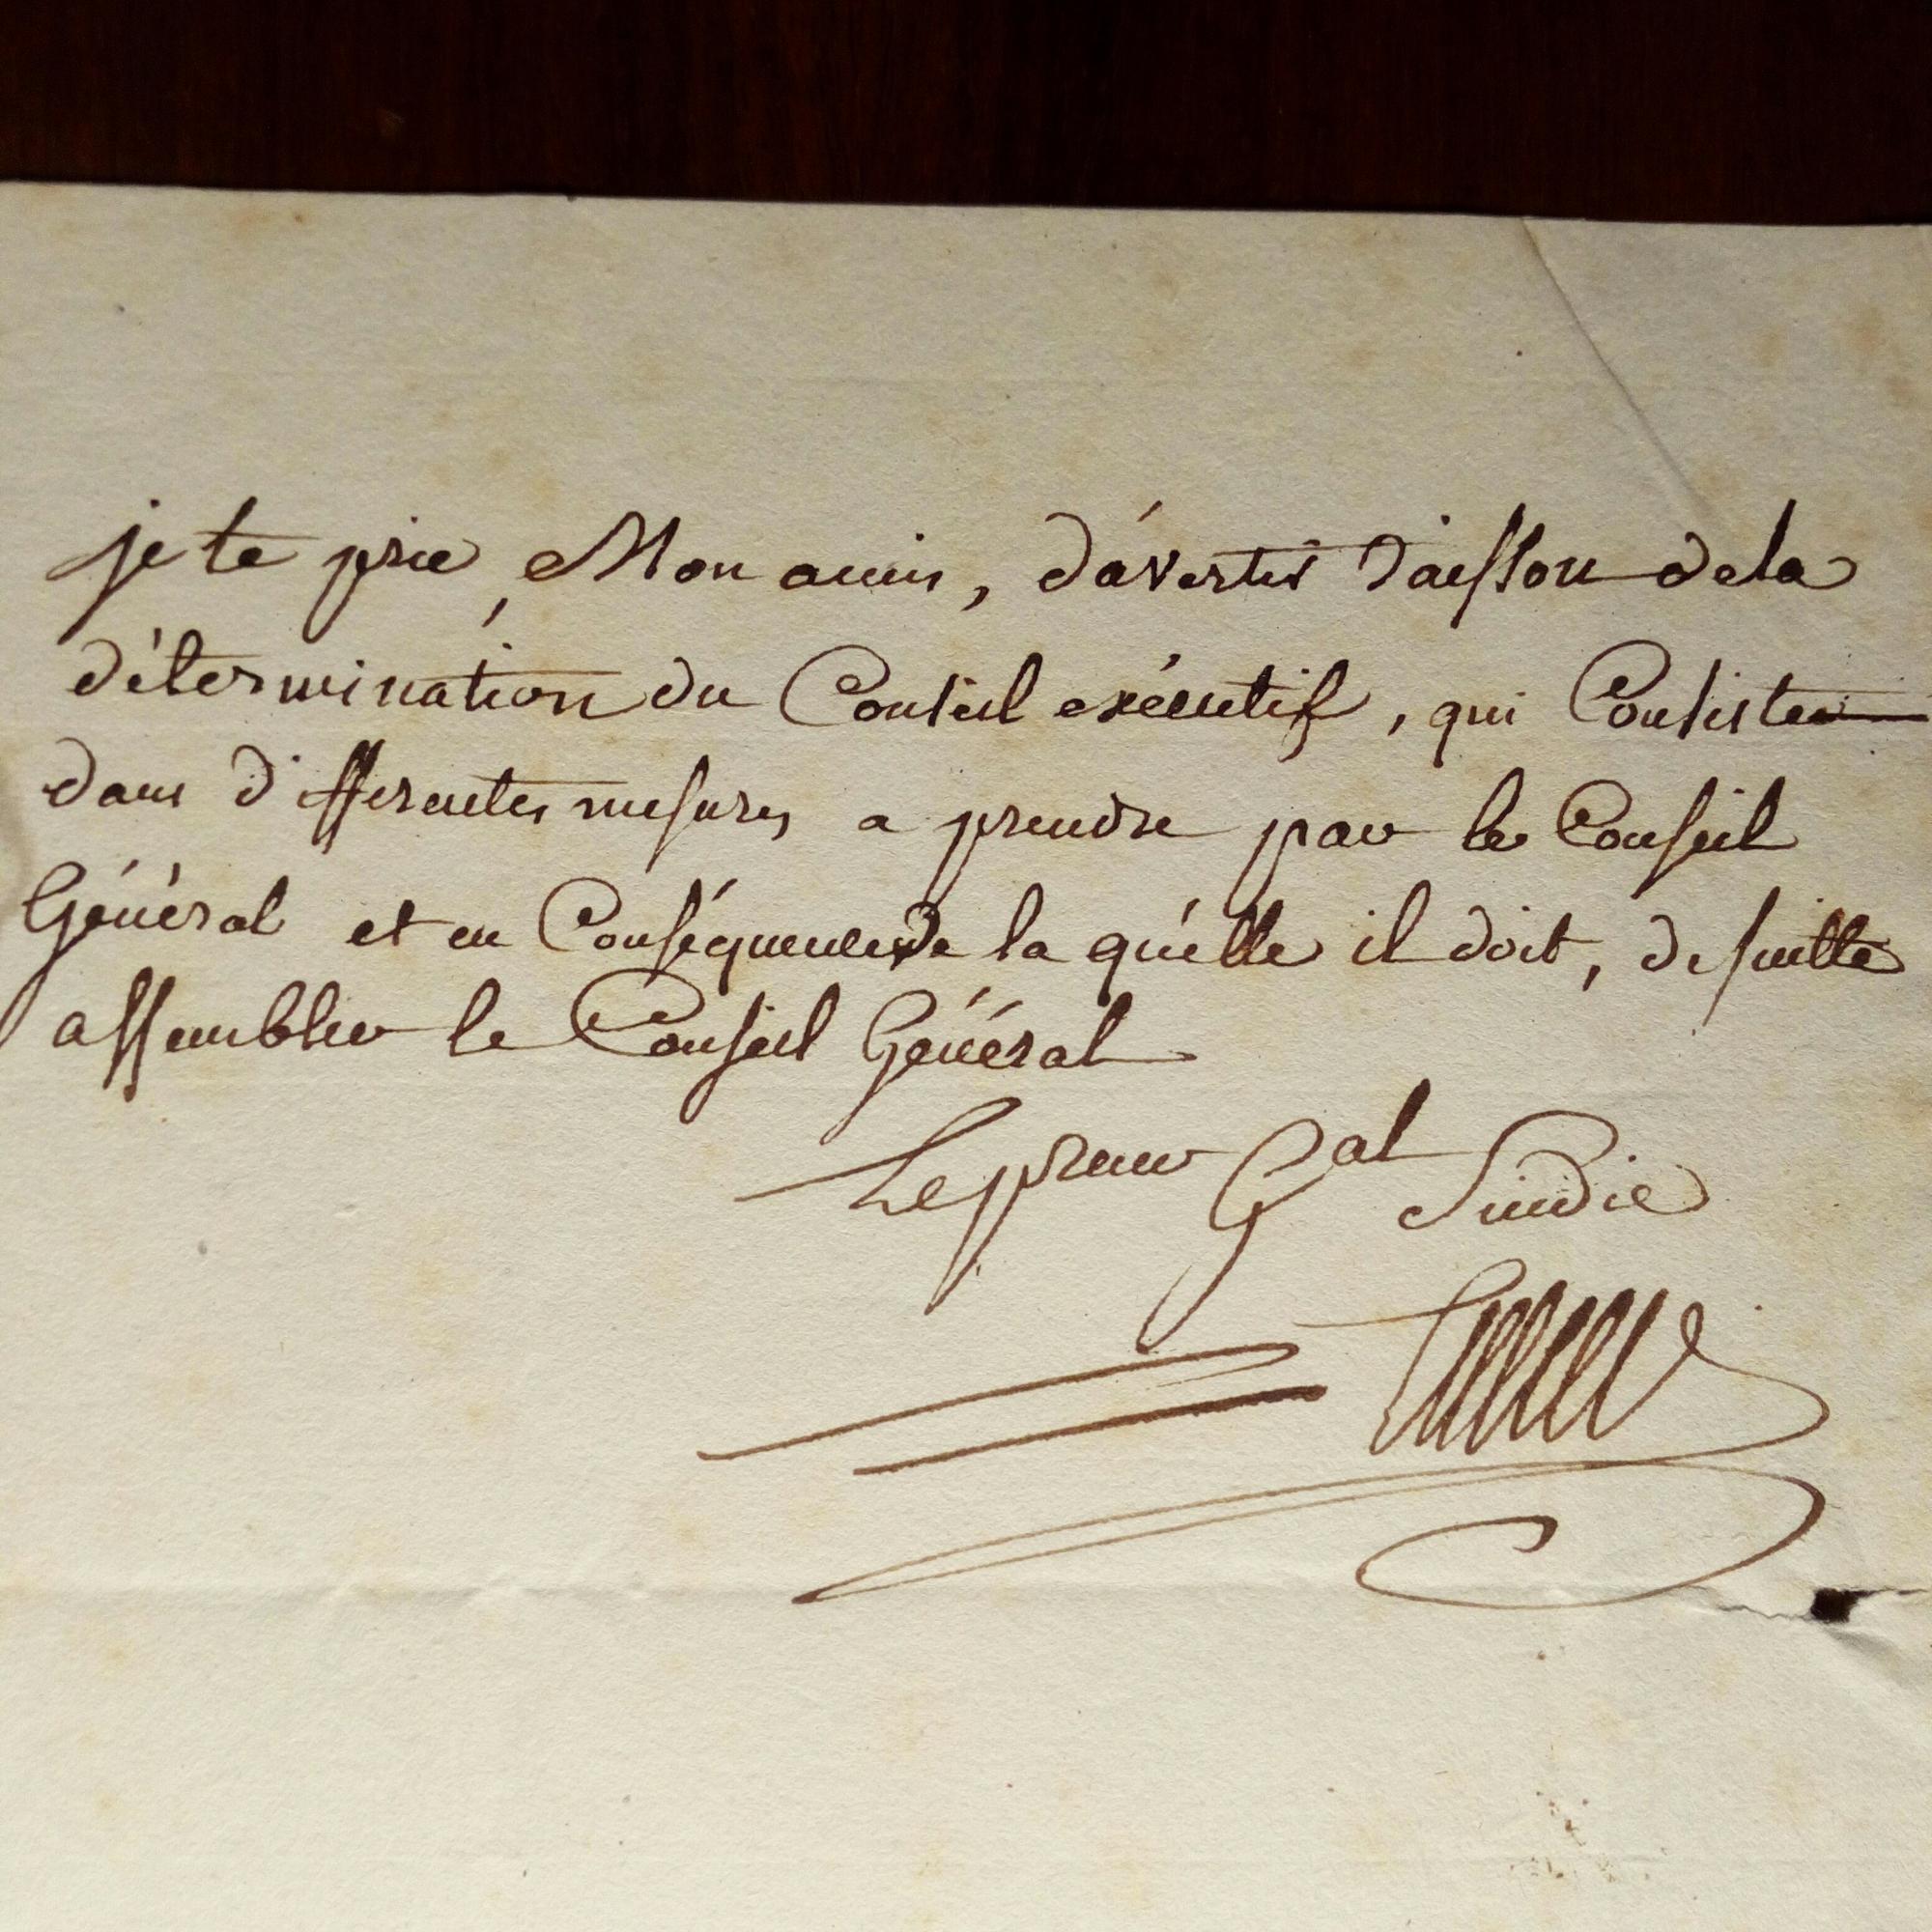 je te prie, Mon ami, d'avertir daisson de la
détermination du Conseil exécutif, qui Consiste
dans differentes mesures a prendre par le Conseil
Général et en Conséquence de la qu'elle il doit, de suitte
assembler le Conseil Général
Le procur Gal Sindic